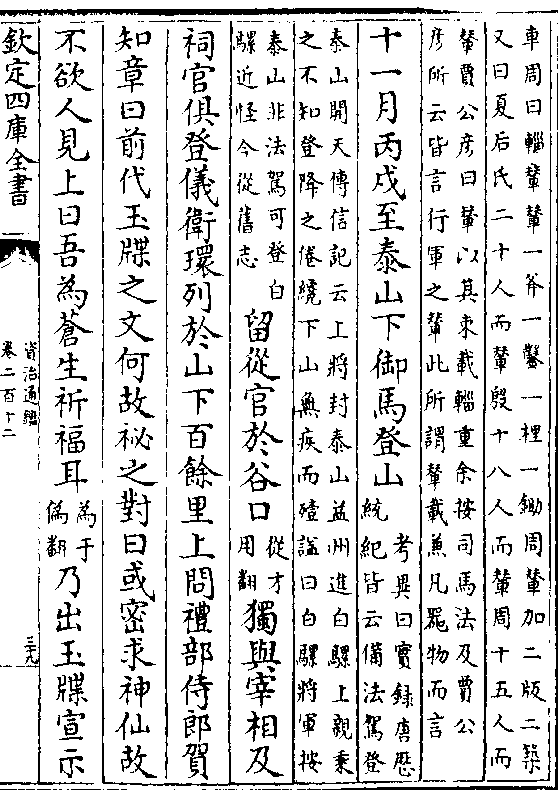 車周曰輜輦輦一斧一鑿一梩一鋤周輦加二版二築
又曰夏后氏二十人而輦殷十八人而輦周十五人而
輦賈公彦曰輦以其束載輜重余按司馬法及賈公
彦所云皆言行軍之輦此所謂輦載兼凡器物而言
十一月丙戍至泰山下御馬登山考異曰實錄唐歷
統紀皆云備法駕登
泰山開天傳信記云上將封泰山益洲進白騾上親乗
之不知登降之倦纔下山無疾而殪諡曰白騾將軍按
泰山非法駕可登白
騾近怪今從舊志
留從官於谷口從才
用翻
獨與宰相及
祠官俱登儀衛環列於山下百餘里上問禮部侍郎賀
知章曰前代玉牒之文何故祕之對曰或密求神仙故
不欲人見上曰吾為蒼生祈福耳為于
偽翻
乃出玉牒宣示
欽定四庫全書
資治通鑑
卷二百十二
三九